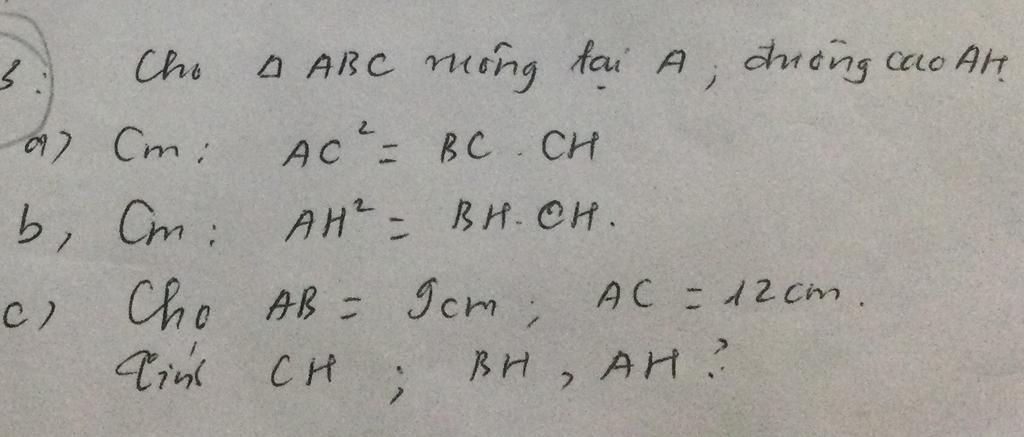 3: Cho Δ ABC vuông tại A, đường cao AH.
a) Cm: AC² = BC . CH
b, Cm: AH² = BH. CH.
c) Cho AB = 9cm; AC = 12cm.
Tính CH; BH, AH?